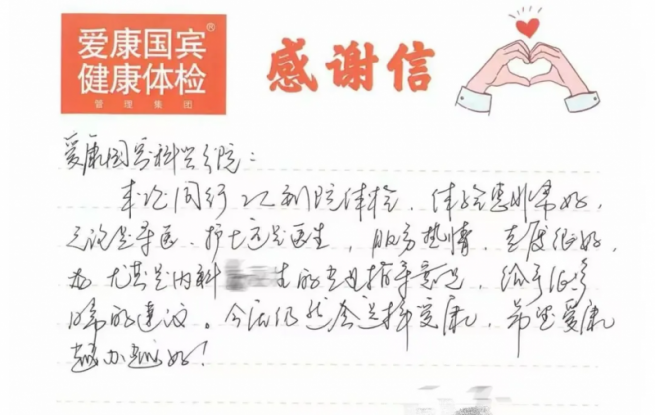 爱康国宾®
健康体检
管理集团
感谢信
爱康国宾科兴分院：
本次同行22到院体检，体验感非常好，
无论是导医、护士还是医生，服务热情，态度很好，
尤其是内科 生的专业指导意见，给予很多
的建议。今后仍然会选择爱康，希望爱康
越办越好！